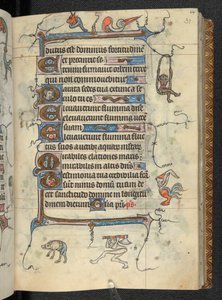 dutus est dominus fortitudinem
et precinxit se
etenim firmauit orbem terre
qui non commouebitur
arata sedes tua ex tunc a se
culo tu es
leuauerunt flumina domine
eleuauerunt flumina uocem
suam
leuauerunt flumina fluctus
suos a uocibus aquarum multarum
mirabiles elationes maris
mirabilis in altis dominus
estimonia tua credibilia facta
sunt nimis domum tuam de
cet sanctitudo domine in longitu
dinem dierum